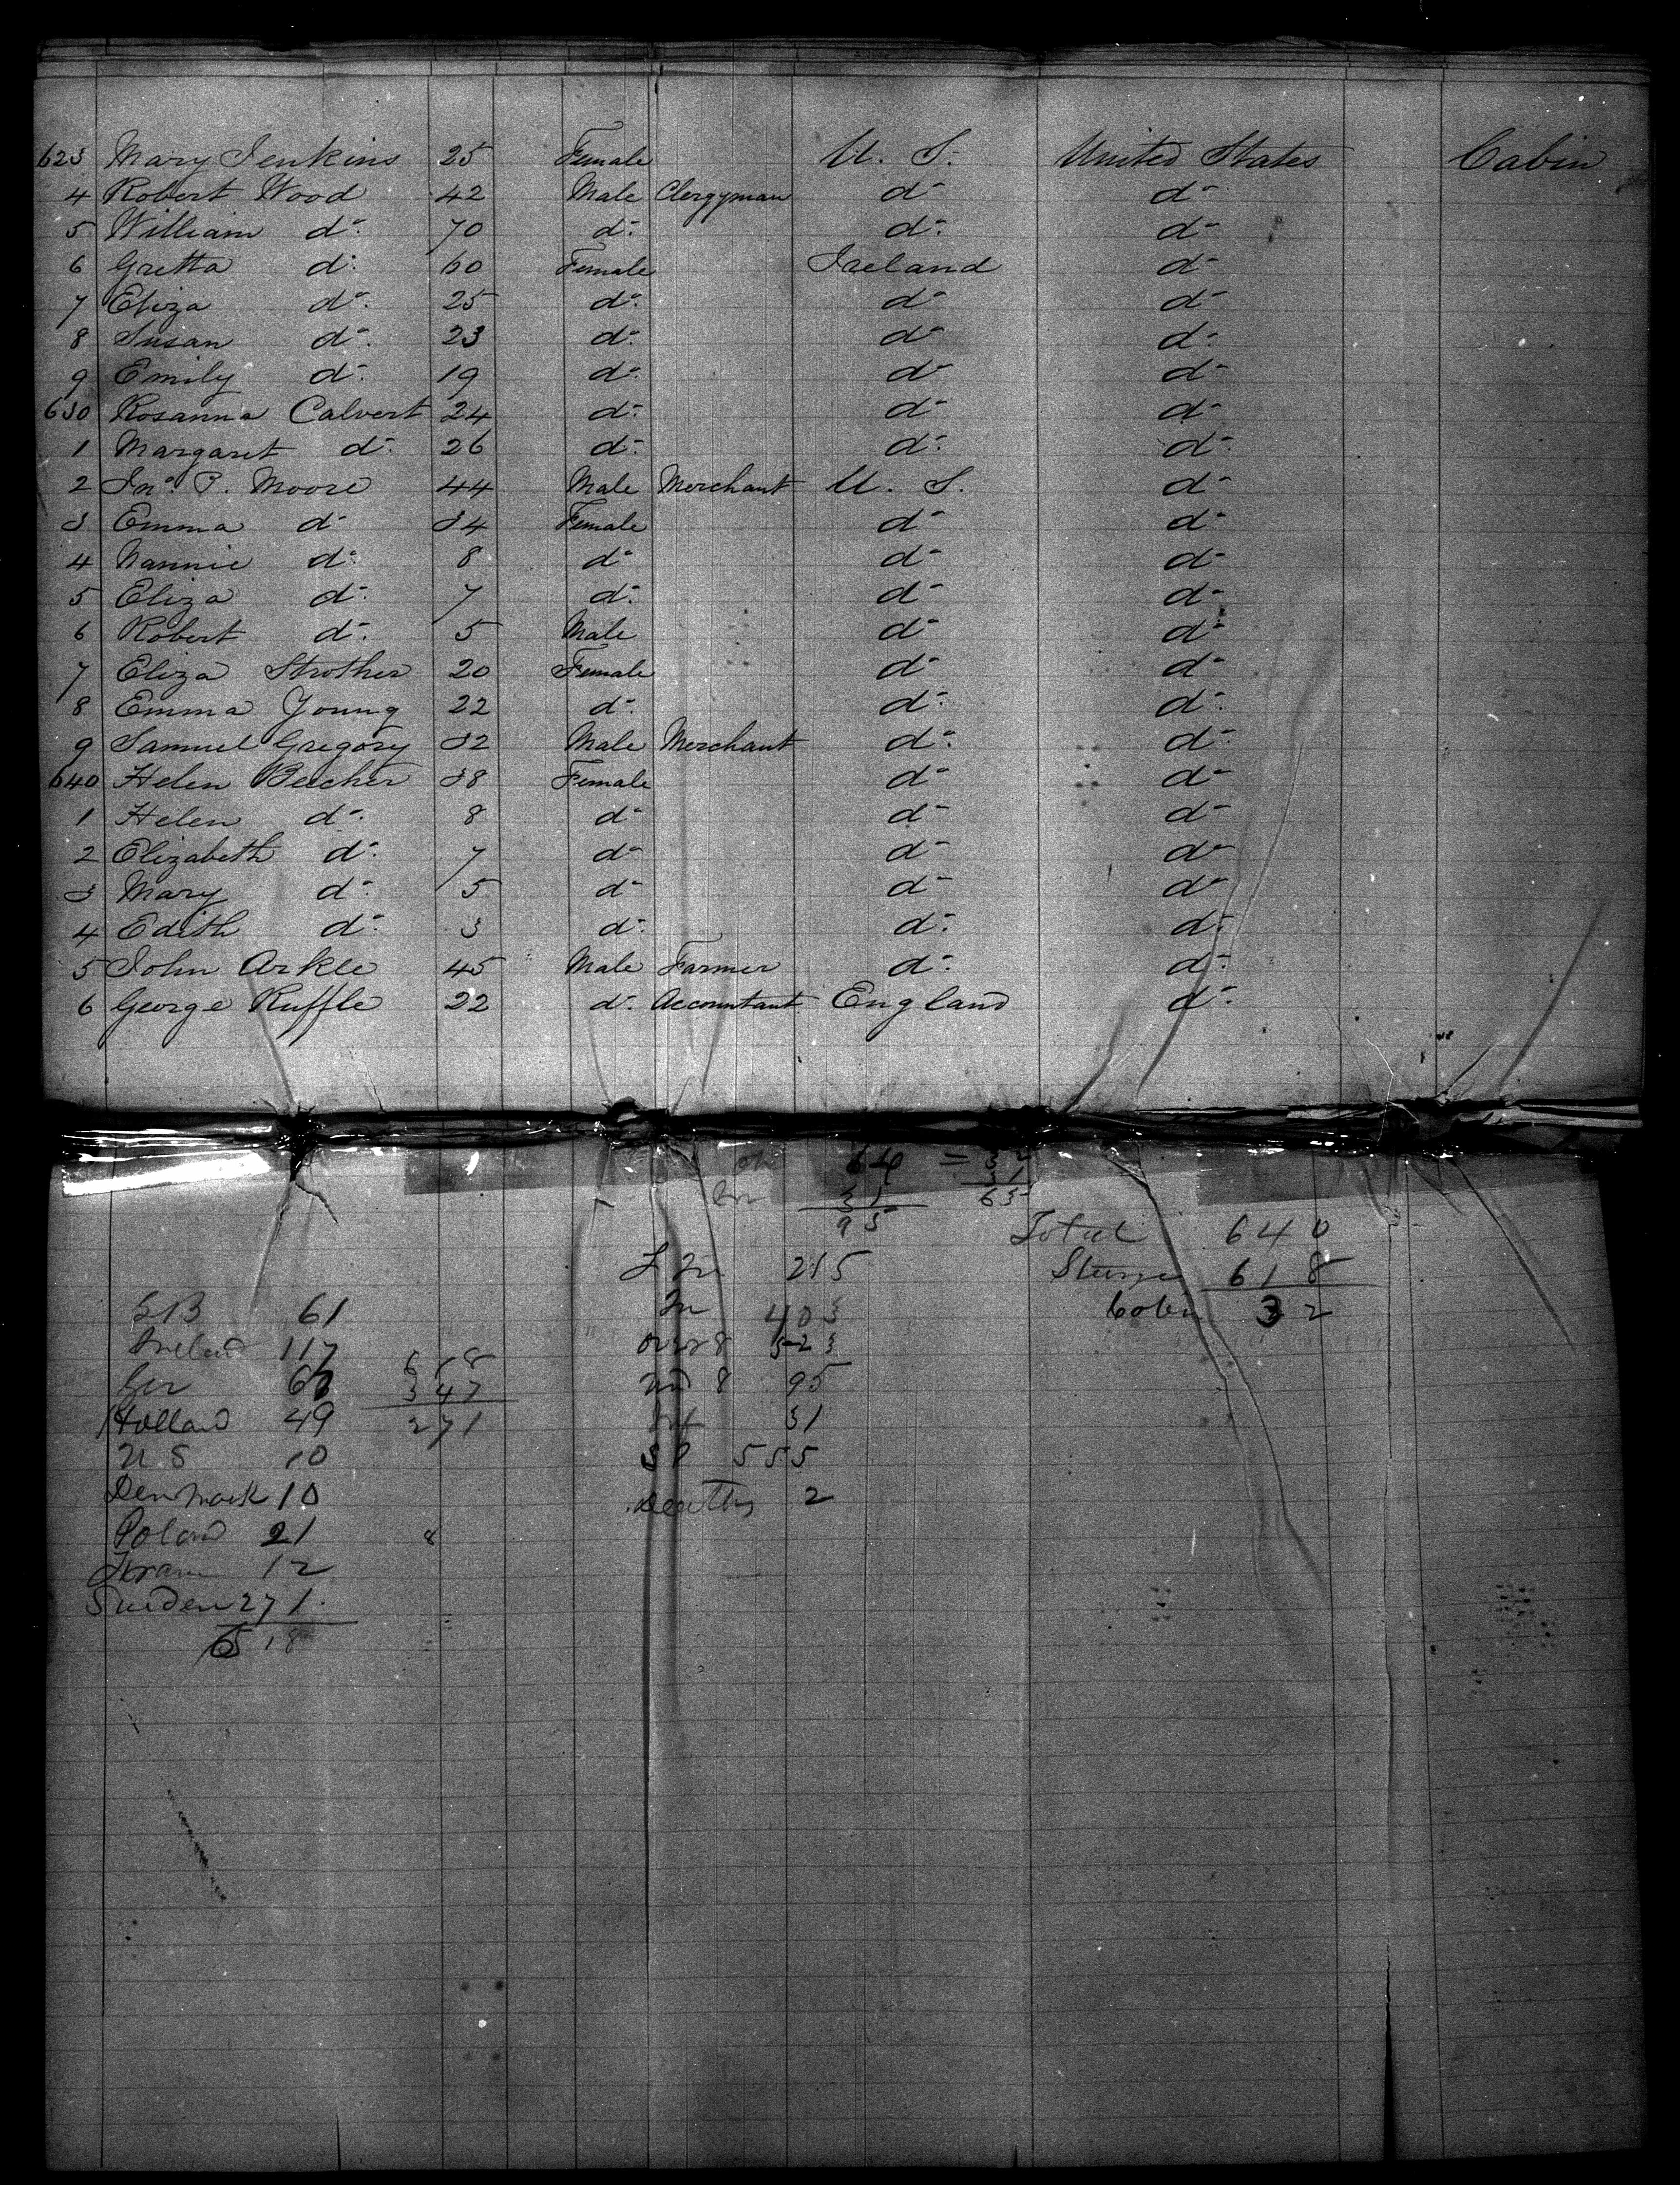 623 Mary Jenkins 25 Female U. S. United States Cabin
4 Robert Wood 42 Male Clergyman do do
5 William do 70 do do do
6 Gretta do 60 Female Ireland do
7 Eliza do 25 do do do
8 Susan do 23 do do do
9 Emily do 19 do do do
630 Rosanna Calvert 24 do do do
1 Margaret do 26 do do do
2 Jno. P. Moore 44 Male Merchant U. S. do
3 Emma do 34 Female do do
4 Nannie do 8 do do do
5 Eliza do 7 do do do
6 Robert do 5 Male do do
7 Eliza Strother 20 Female do do
8 Emma Young 22 do do do
9 Samuel Gregory 32 Male Merchant do do
640 Helen Beecher 38 Female do do
1 Helen do 8 do do do
2 Elizabeth do 7 do do do
3 Mary do 5 do do do
4 Edith do 3 do do do
5 John Arkle 45 Male Farmer do do
6 George Ruffle 22 do Accountant England do
64 = 32
31 31
95 63
Total 640
618
32
GB 61
Ireland 117
Ger
Holland 49
U S 10
Denmark 10
Poland 21
12
Sweden 271
618
618
347
271
215
403
over 8 523
und 8 95
Inf 31
555
Deaths 2
8